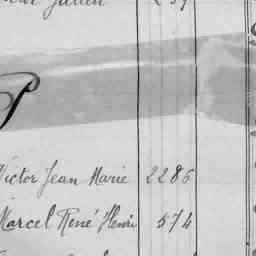 Julien 239
P
Victor Jean Marie 2286
Marcel René Henri 574